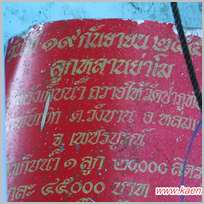 ๑๙ กันยายน ๒๕
ลูกหลานยาโม
ถังเก็บน้ำ ถวายให้ วัดป่า
ต.วังบาน อ.หล่ม
จ.เพชรบูรณ์
เก็บน้ำ ๑ ลูก ๒๐๐๐๐ ลิตร
ละ ๔๕๐๐๐ บาท
www.kaen